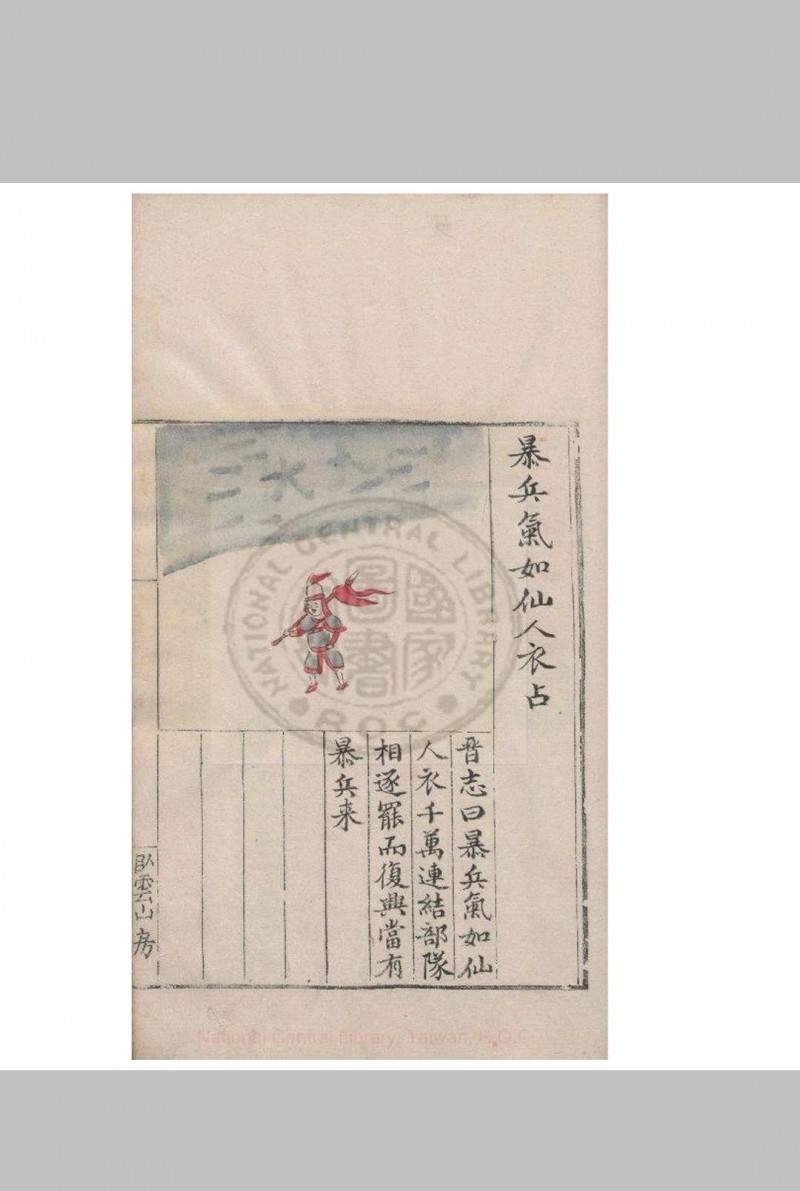 暴兵氣如仙人衣占
晉志曰暴兵氣如仙
人衣千萬連結部隊
相逐罷而復興當有
暴兵来
臥雲山房
NATIONAL CENTRAL LIBRARY
R.O.C.
國家圖書館
National Central Library, Taiwan, R.O.C.